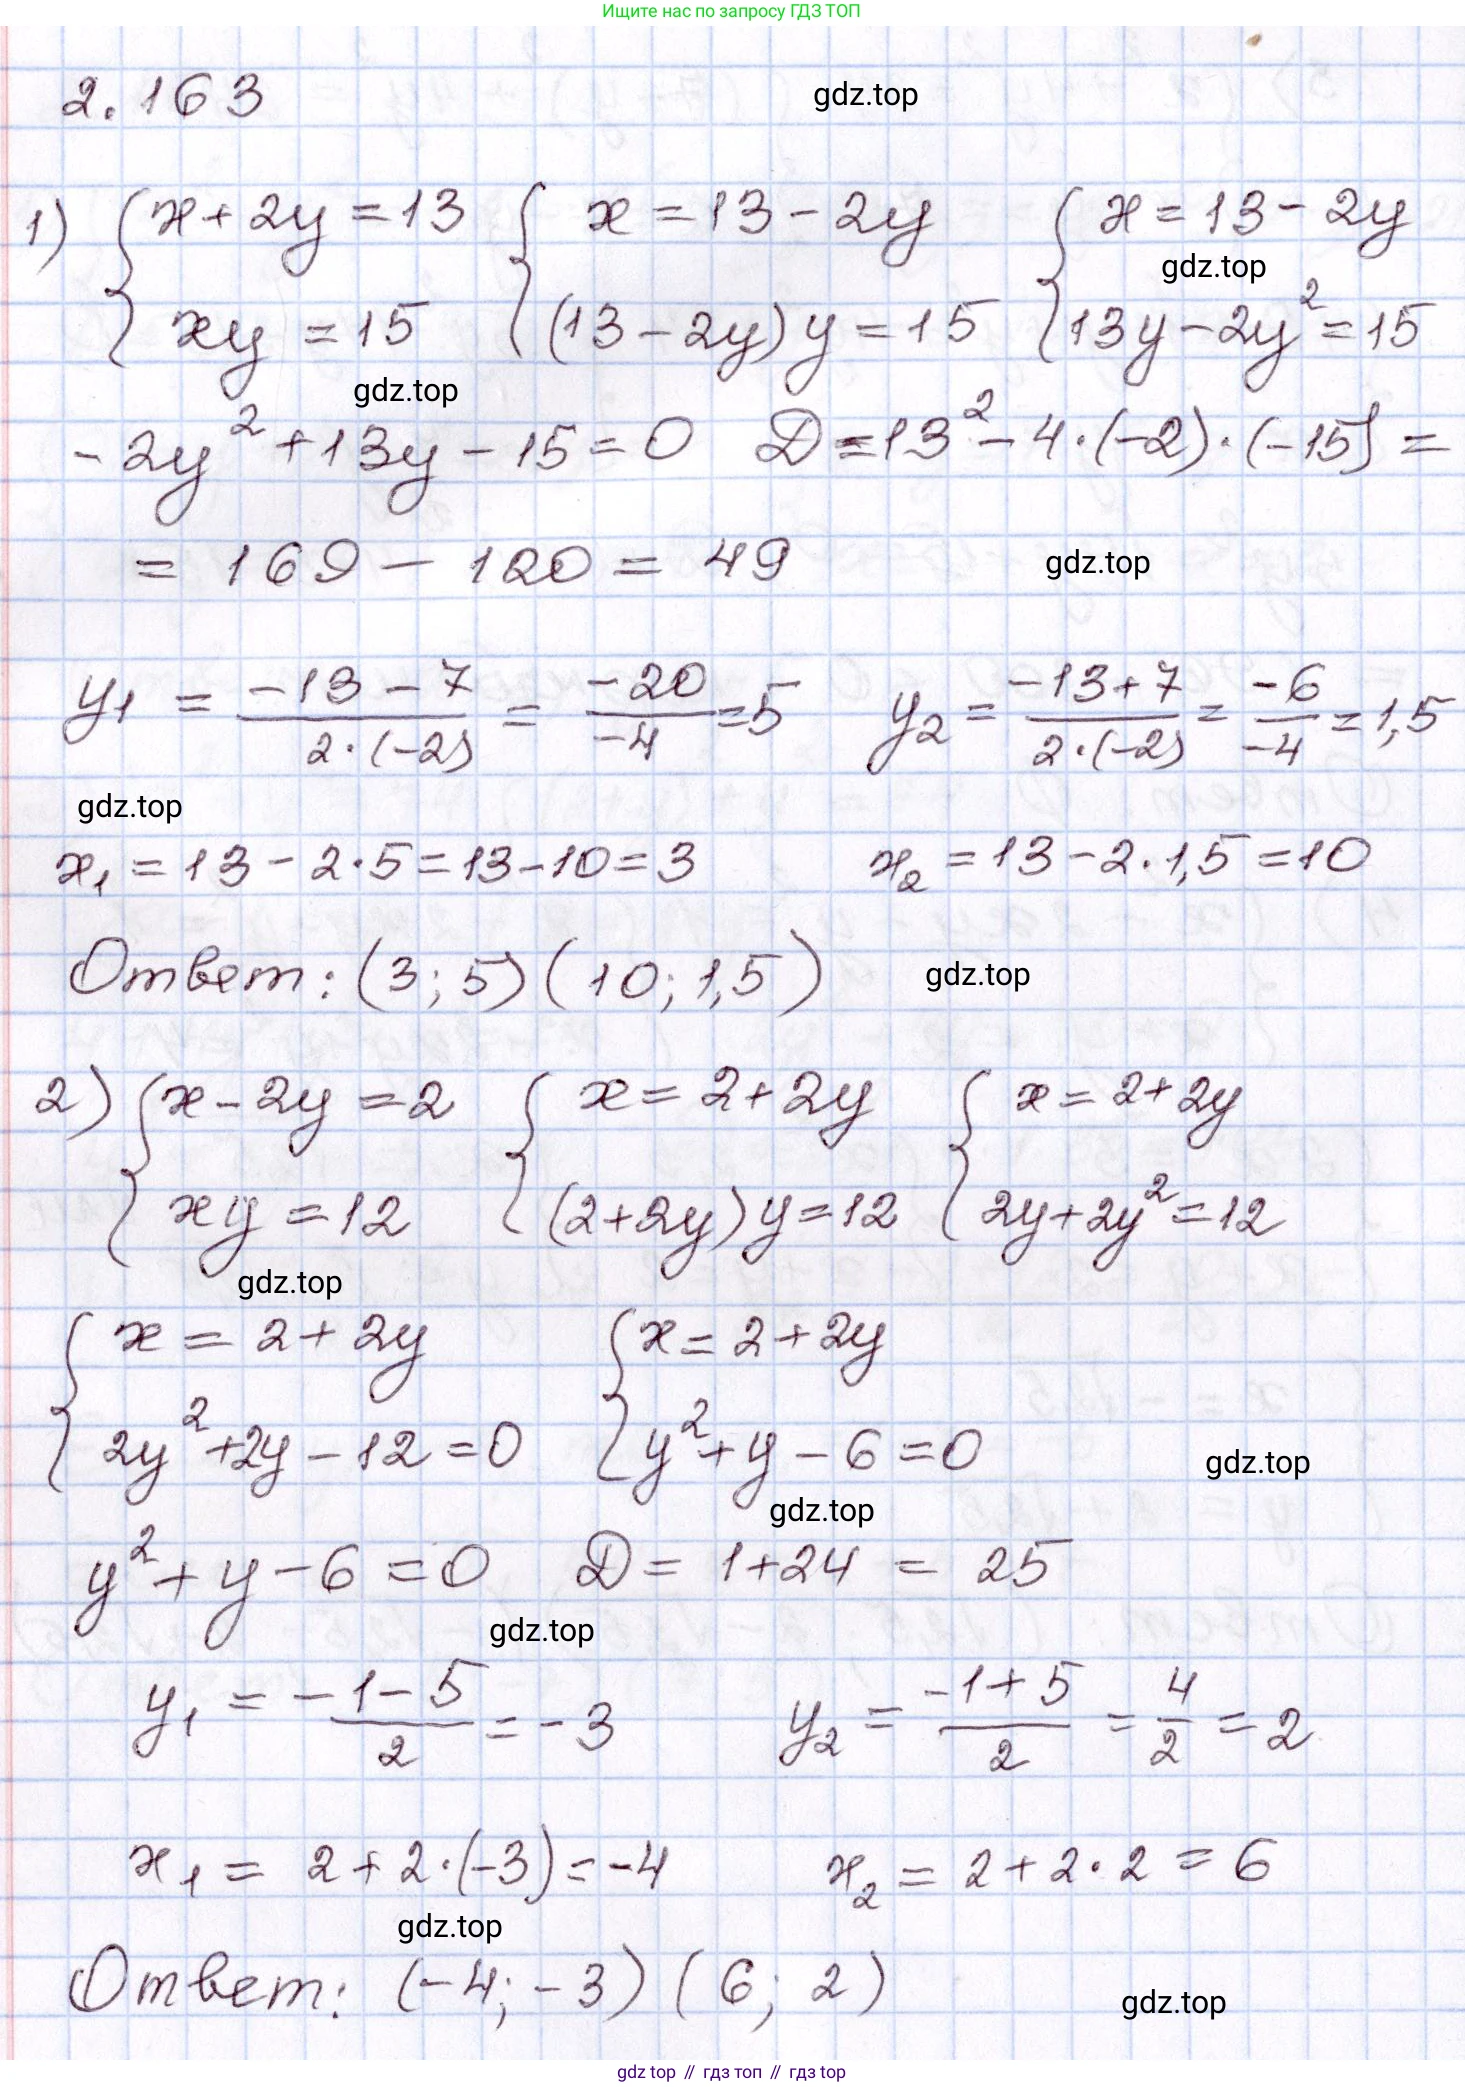 Ищите нас по запросу ГДЗ ТОП
2.163
gdz.top
1) { x + 2y = 13 { x = 13 - 2y { x = 13 - 2y
gdz.top
xy = 15 (13 - 2y)y = 15 13y - 2y² = 15
gdz.top
-2y² + 13y - 15 = 0 D = 13² - 4·(-2)·(-15) =
= 169 - 120 = 49
gdz.top
y₁ = (-13 - 7)/(2·(-2)) = -20/-4 = 5 y₂ = (-13 + 7)/(2·(-2)) = -6/-4 = 1,5
gdz.top
x₁ = 13 - 2·5 = 13 - 10 = 3 x₂ = 13 - 2·1,5 = 10
Ответ: (3; 5) (10; 1,5)
gdz.top
2) { x - 2y = 2 { x = 2 + 2y { x = 2 + 2y
xy = 12 (2 + 2y)y = 12 2y + 2y² = 12
gdz.top
{ x = 2 + 2y { x = 2 + 2y
2y² + 2y - 12 = 0 y² + y - 6 = 0
gdz.top
gdz.top
y² + y - 6 = 0 D = 1 + 24 = 25
gdz.top
y₁ = (-1 - 5)/2 = -3 y₂ = (-1 + 5)/2 = 4/2 = 2
x₁ = 2 + 2·(-3) = -4 x₂ = 2 + 2·2 = 6
gdz.top
Ответ: (-4; -3) (6; 2)
gdz.top
gdz top // гдз топ // гдз top